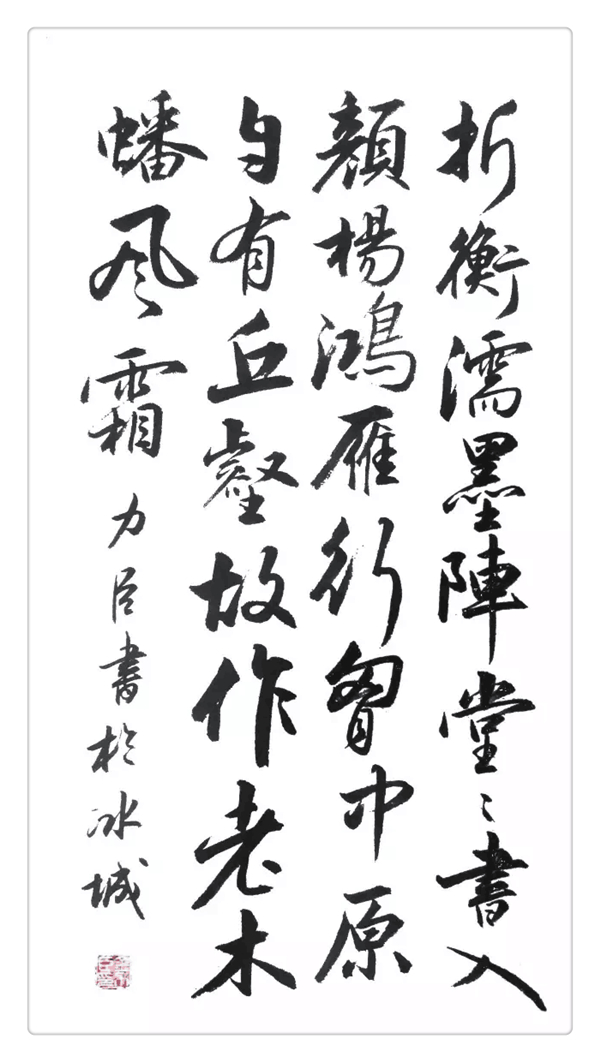 折衝濡墨陣堂〻書入
顏楊鴻雁行胷中原
自有丘壑故作老木
蟠風霜 力臣書於冰城